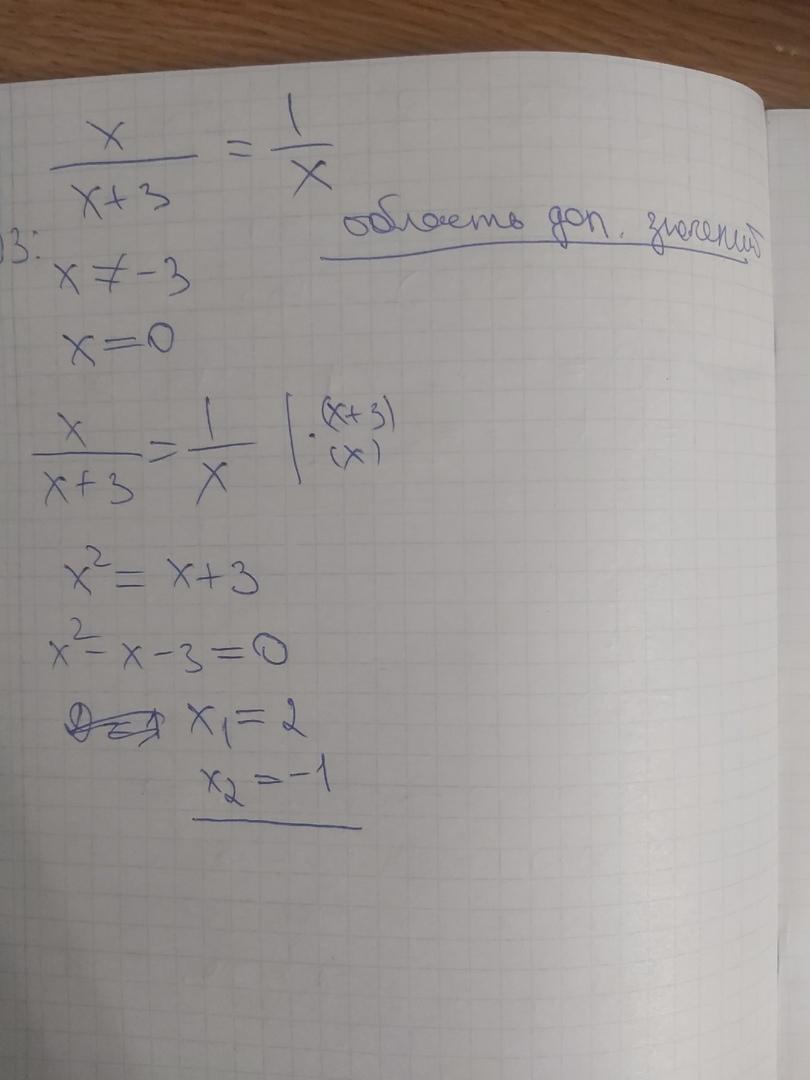 x/(x+3) = 1/x
область доп. значений
З:
x ≠ -3
x = 0
x/(x+3) = 1/x | · (x+3) (x)
x² = x+3
x² - x - 3 = 0
x₁ = 2
x₂ = -1